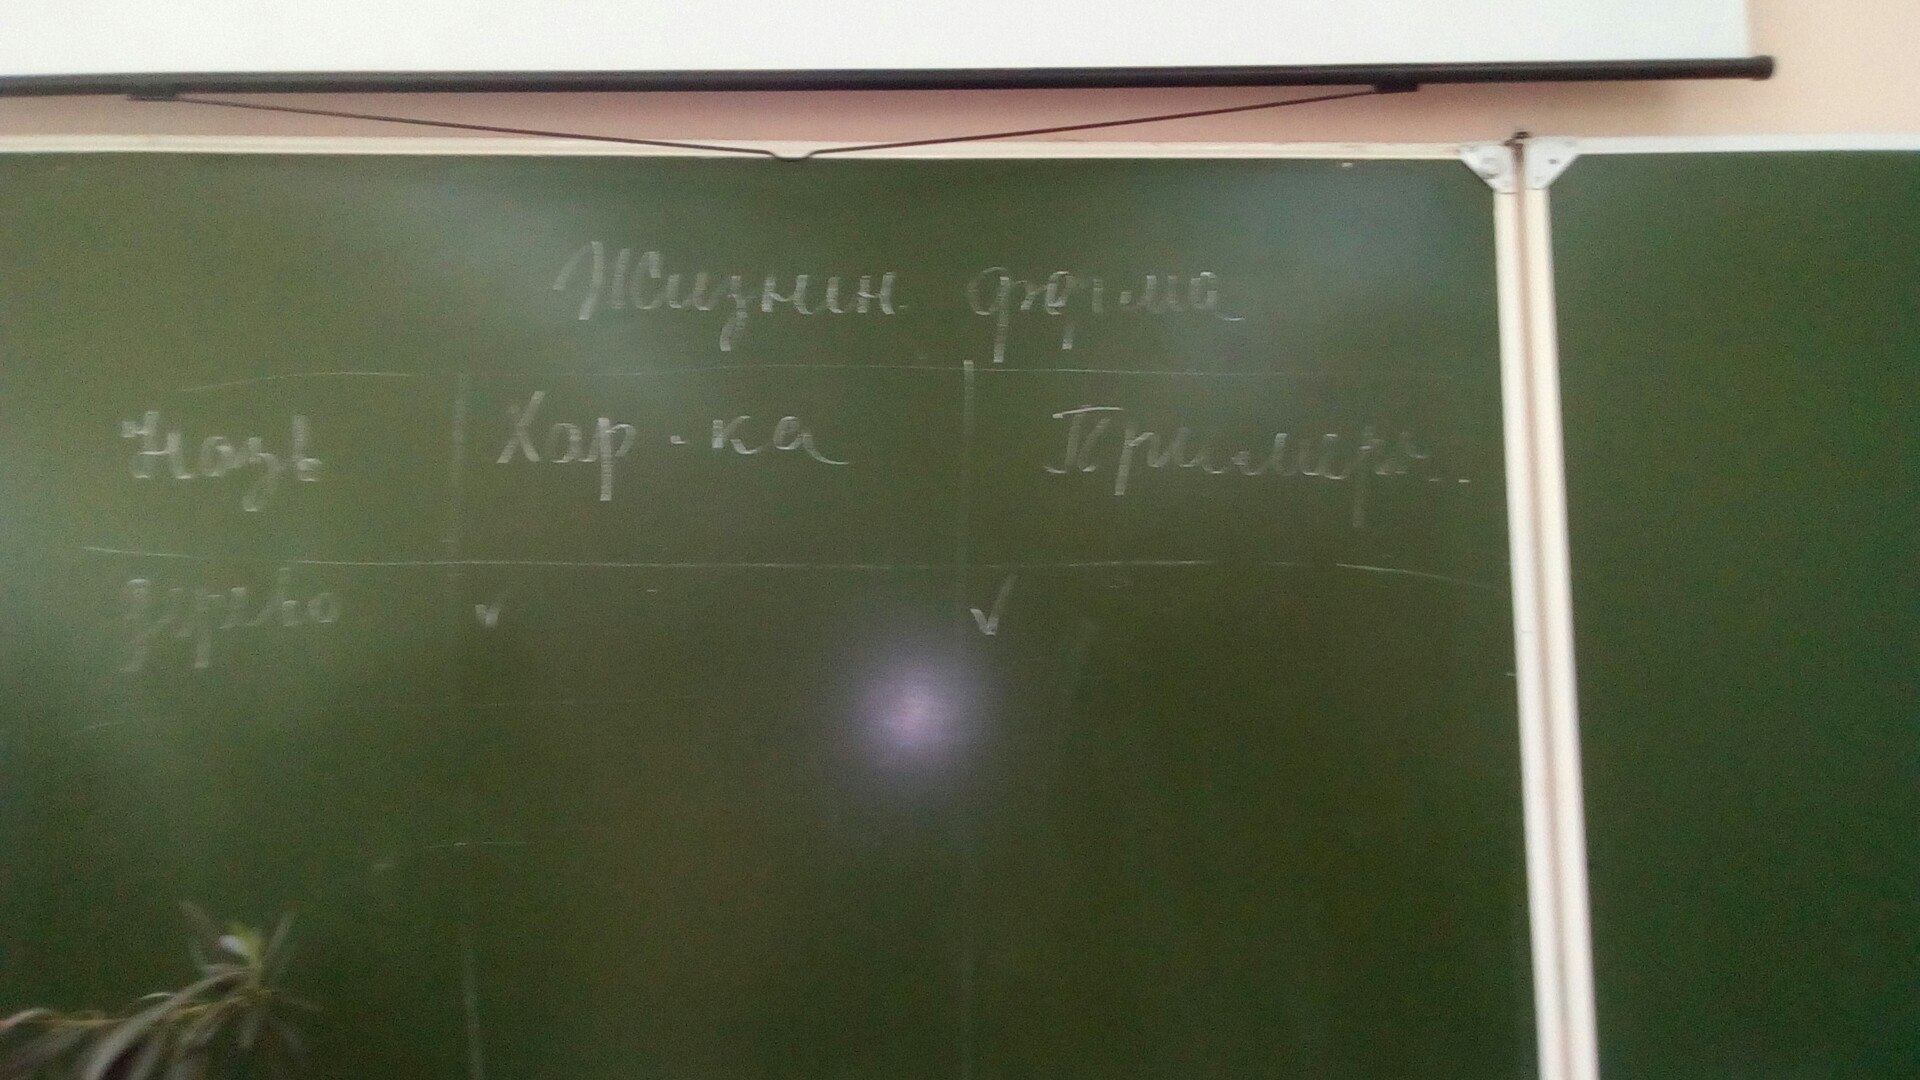 Жизнен форма
Назв Хар-ка Примеры
дерево ✓ ✓